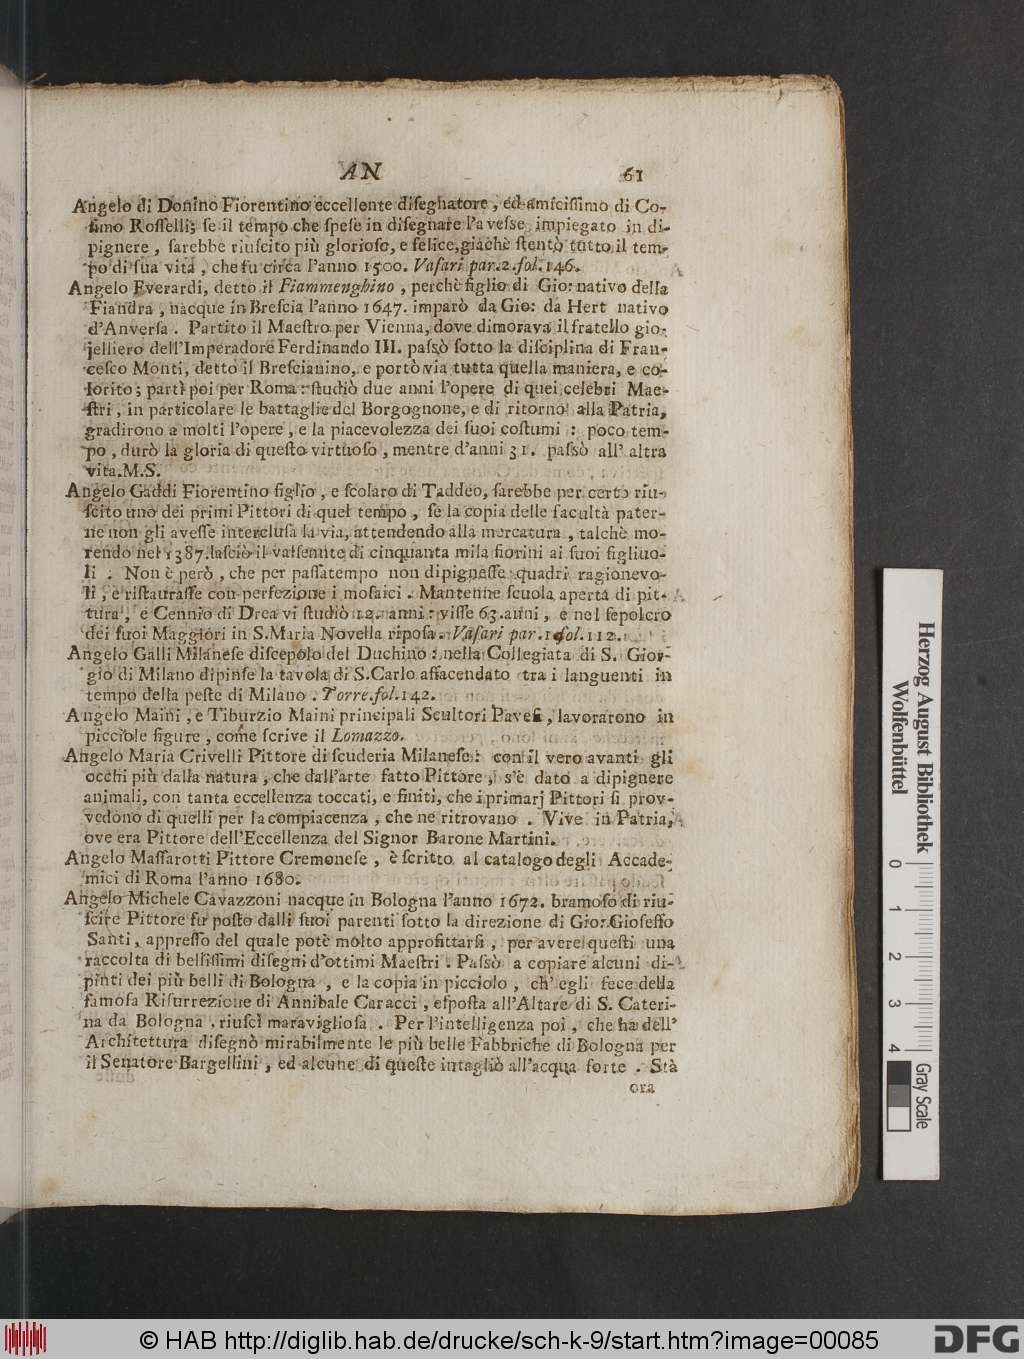 AN 61
Angelo di Donino Fiorentino eccellente diſegnatore, ed amiciſſimo di Co-
ſimo Roſſelli; ſe il tempo che ſpeſe in diſegnare l'aveſſe impiegato in di-
pignere, ſarebbe riuſcito più glorioſo, e felice, giachè ſtentò tutto il tem-
po di ſua vita, che fu circa l'anno 1500. Vaſari par.2. fol.146.
Angelo Everardi, detto il Fiammenghino, perchè figlio di Gio: nativo della
Fiandra, nacque in Breſcia l'anno 1647. imparò da Gio: da Hert nativo
d'Anverſa. Partito il Maeſtro per Vienna, dove dimorava il fratello gio-
jelliero dell'Imperadore Ferdinando III. paſsò ſotto la diſciplina di Fran-
ceſco Monti, detto il Breſcianino, e portò via tutta quella maniera, e co-
lorito; partì poi per Roma: ſtudiò due anni l'opere di quei celebri Mae-
ſtri, in particolare le battaglie del Borgognone, e di ritorno alla Patria,
gradirono a molti l'opere, e la piacevolezza dei ſuoi coſtumi: poco tem-
po, durò la gloria di queſto virtuoſo, mentre d'anni 31. paſsò all' altra
vita. M.S.
Angelo Gaddi Fiorentino figlio, e ſcolaro di Taddeo, ſarebbe per certo riu-
ſcito uno dei primi Pittori di quel tempo, ſe la copia delle facultà pater-
ne non gli aveſſe intercluſa la via, attendendo alla mercatura, talchè mo-
rendo nel 1387. laſciò il valſente di cinquanta mila fiorini ai ſuoi figliuo-
li. Non è però, che per paſſatempo non dipigneſſe quadri ragionevo-
li, e riſtauraſſe con perfezione i moſaici. Mantenne ſcuola aperta di pit-
tura, e Cennio di Drea vi ſtudiò 12. anni: viſſe 63. anni, e nel ſepolcro
dei ſuoi Maggiori in S. Maria Novella ripoſa. Vaſari par. 1. fol. 112.
Angelo Galli Milaneſe diſcepolo del Duchino: nella Collegiata di S. Gior-
gio di Milano dipinſe la tavola di S. Carlo affacendato tra i languenti in
tempo della peſte di Milano. Torre. fol. 142.
Angelo Maini, e Tiburzio Maini principali Scultori Paveſi, lavorarono in
picciole figure, come ſcrive il Lomazzo.
Angelo Maria Crivelli Pittore di ſcuderia Milaneſe: con il vero avanti gli
occhi più dalla natura, che dall'arte fatto Pittore, s'è dato a dipignere
animali, con tanta eccellenza toccati, e finiti, che i primarj Pittori ſi prov-
vedono di quelli per la compiacenza, che ne ritrovano. Vive in Patria,
ove era Pittore dell'Eccellenza del Signor Barone Martini.
Angelo Maſſarotti Pittore Cremoneſe, è ſcritto al catalogo degli Accade-
mici di Roma l'anno 1680.
Angelo Michele Cavazzoni nacque in Bologna l'anno 1672. bramoſo di riu-
ſcire Pittore fu poſto dalli ſuoi parenti ſotto la direzione di Gio: Gioſeffo
Santi, appreſſo del quale potè molto approfittarſi, per avere queſti una
raccolta di belliſſimi diſegni d'ottimi Maeſtri. Paſsò a copiare alcuni di-
pinti dei più belli di Bologna, e la copia in picciolo, ch' egli fece della
famoſa Riſurrezione di Annibale Caracci, eſpoſta all'Altare di S. Cateri-
na da Bologna, riuſcì maraviglioſa. Per l'intelligenza poi, che ha dell'
Architettura diſegnò mirabilmente le più belle Fabbriche di Bologna per
il Senatore Bargellini, ed alcune di queſte intagliò all'acqua forte. Stà
ora
Herzog August Bibliothek
Wolfenbüttel
0 1 2 3 4
Gray Scale
© HAB http://diglib.hab.de/drucke/sch-k-9/start.htm?image=00085
DFG